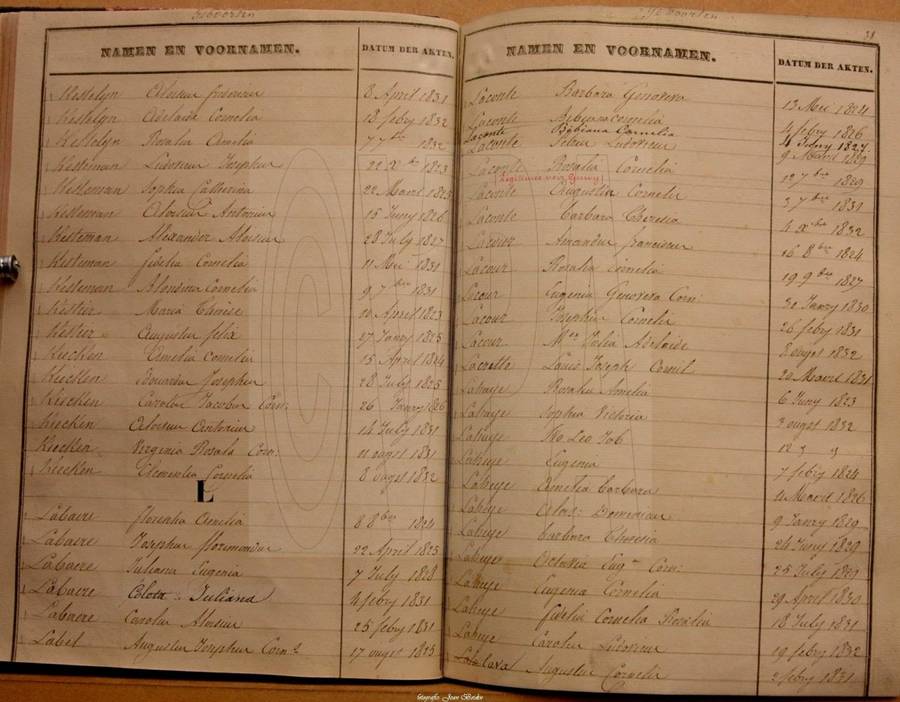 Geboorten
NAMEN EN VOORNAMEN. DATUM DER AKTEN.
Kestelyn Aloisius 8 April 1831
Kestelyn Adelaïde Cornelia 18 febry 1832
Kestelyn Rosalia Amelia 7 7bre 1832
Kesteman Livinus Josephus 22 Xbre 1823
Kesteman Sophia Catherina 22 Maart
Kesteman Aloisius Antonius 15 Juny 1826
Kesteman Alexander Aloisius 28 July 1827
Kesteman fidelia Cornelia 11 Mei 1831
Kesteman Blonsina Cornelia 9 7bre 1831
Kestier Maria Therese 10 April 1823
Kestier Augustus felix 27 Janry 1825
Kiecken Amelia Cornelia 15 April 1824
Kiecken Eduardus Josephus 28 July 1825
Kiecken Carolus Jacobus Corn: 26 Janry 1826
Kiecken Aloisius Antonius 14 July 1831
Kiecken Virginia Rosala Corn: 11 augst 1831
Kiecken Clementia Cornelia 8 augst 1832
L
Labaere florentia Amelia 8 8bre 1824
Labaere Josephus florimondus 22 April 1825
Labaere Juliana Eugenia 7 July 1828
Labaere Juliana 4 feby 1831
Labaere Carolus Aloisius 25 feby 1831
Labet Augustus Josephus Corn: 17 augst 1825
Geboorten
31
NAMEN EN VOORNAMEN. DATUM DER AKTEN.
Laconte Barbara Genoveva 13 Mei 1824
Laconte Bibiana cornelia 4 feby 1826
Laconte Bibiana Cornelia 4 1827
Laconte Petrus Ludovicus 9 Maart 1829
Laconte Rosalia Cornelia 12 7bre 1829
Laconte Augustus Cornelis 3 7bre 1831
Laconte Barbara Theresia 4 Xbre 1832
Lacour Amandus franciscus 16 8bre 1824
Lacour Rosalia Cornelia 19 9bre 1827
Lacour Eugenia Genoveva Corn: 30 Janry 1830
Lacour Josephus Cornelis 26 feby 1831
Lacour Julia Adelaïde 8 augst 1832
Louis Joseph Cornil 20 Maart 1831
Lahaye Rosalia Amelia 6 Juny 1823
Lahaye Sophia Victoria 3 augst 1832
Lahaye Leo Job
Lahaye Eugenia 7 feby 1824
Lahaye Amelia Barbara 4 Maart 1826
Lahaye Alois: Domenicus 9 Janry 1829
Lahaye Barbara Theresia 24 Juny 1829
Lahaye Octavia Eug: Corn: 25 July 1829
Lahaye Eugenia Cornelia 29 April 1830
Lahaye fidelia Cornelia Rosalia 18 July 1831
Lahaye Carolus Ludovicus 19 feby 1832
Augustus Cornelis 2 feby 1831
fotografie: Jean Borden